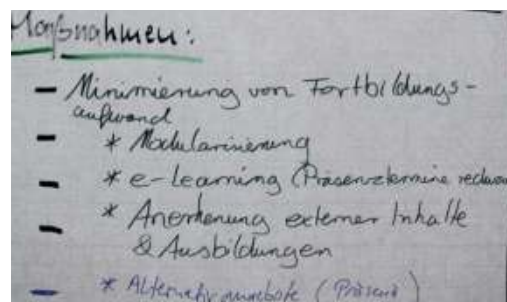 Maßnahmen:
– Minimierung von Fortbildungs-
aufwand
* Modularisierung
* e-learning (Präsenztermine reduz
* Anerkenung externer Inhalte
& Ausbildungen
* Alternativangebote (Präsenz)